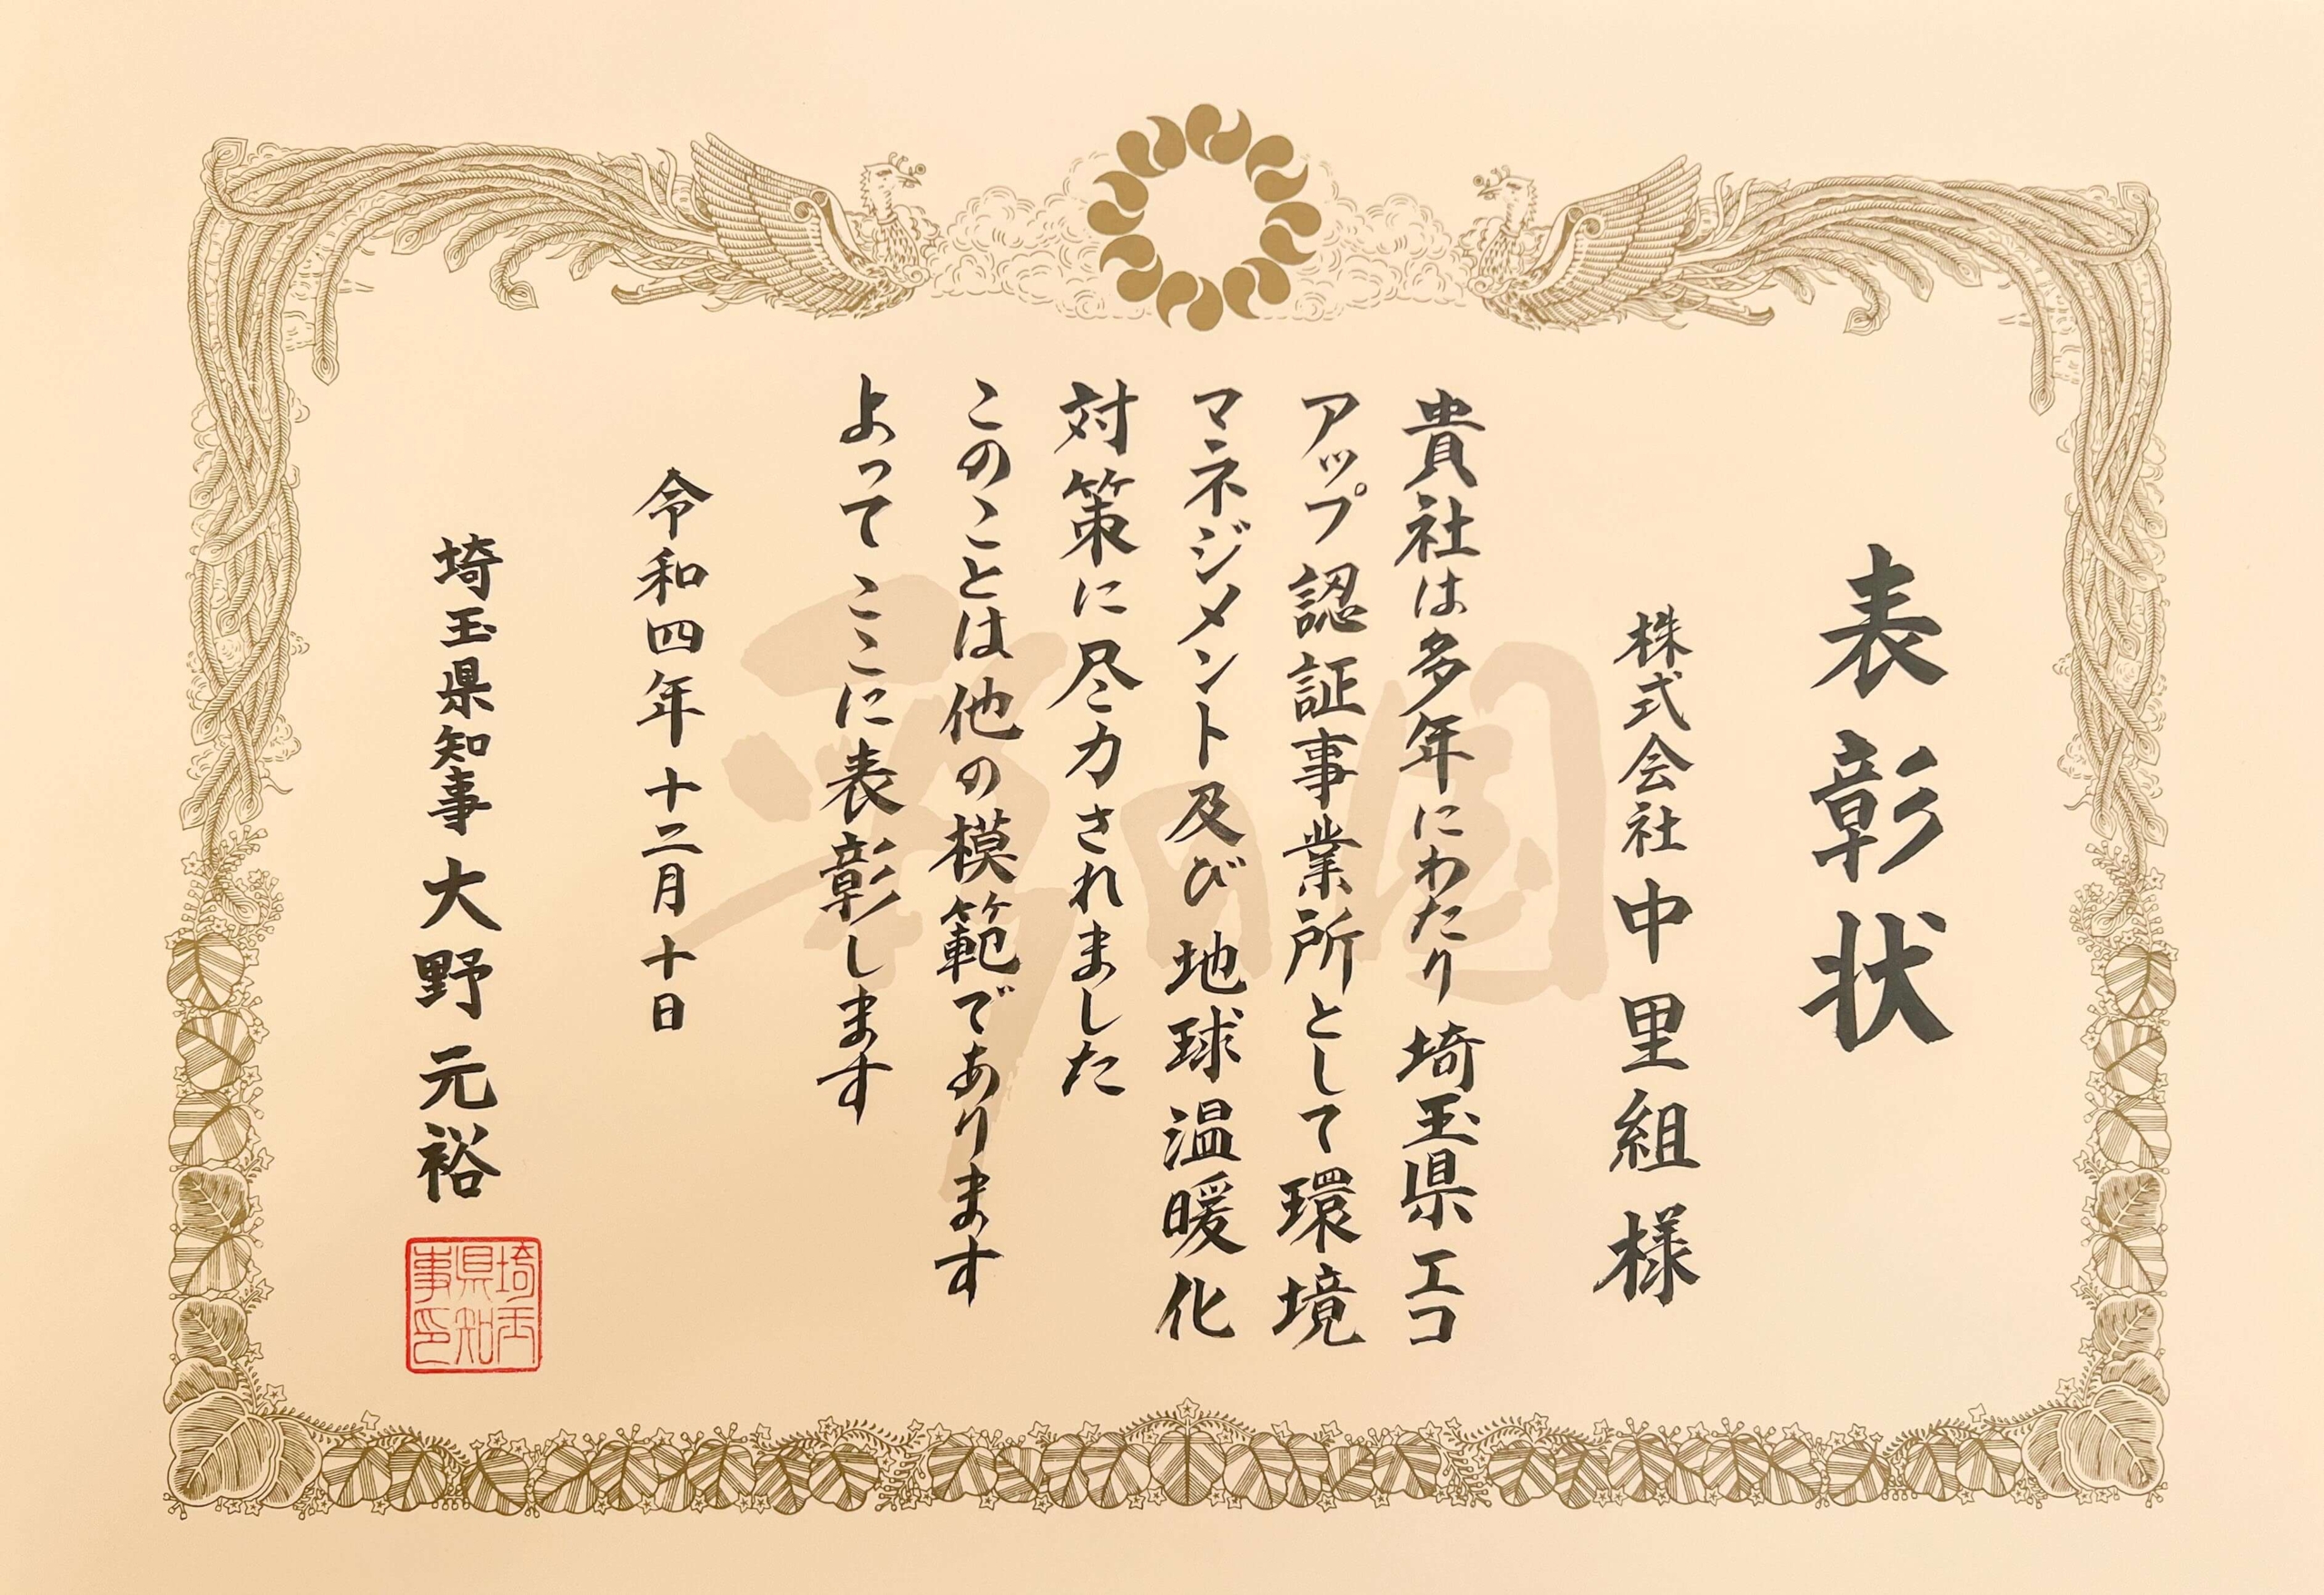 表彰状
株式会社中里組様
貴社は多年にわたり埼玉県エコ
アップ認証事業所として環境
マネジメント及び地球温暖化
対策に尽力されました
このことは他の模範であります
よってここに表彰します
令和四年十二月十日
埼玉県知事大野元裕
埼玉
県知
事印
彩の国